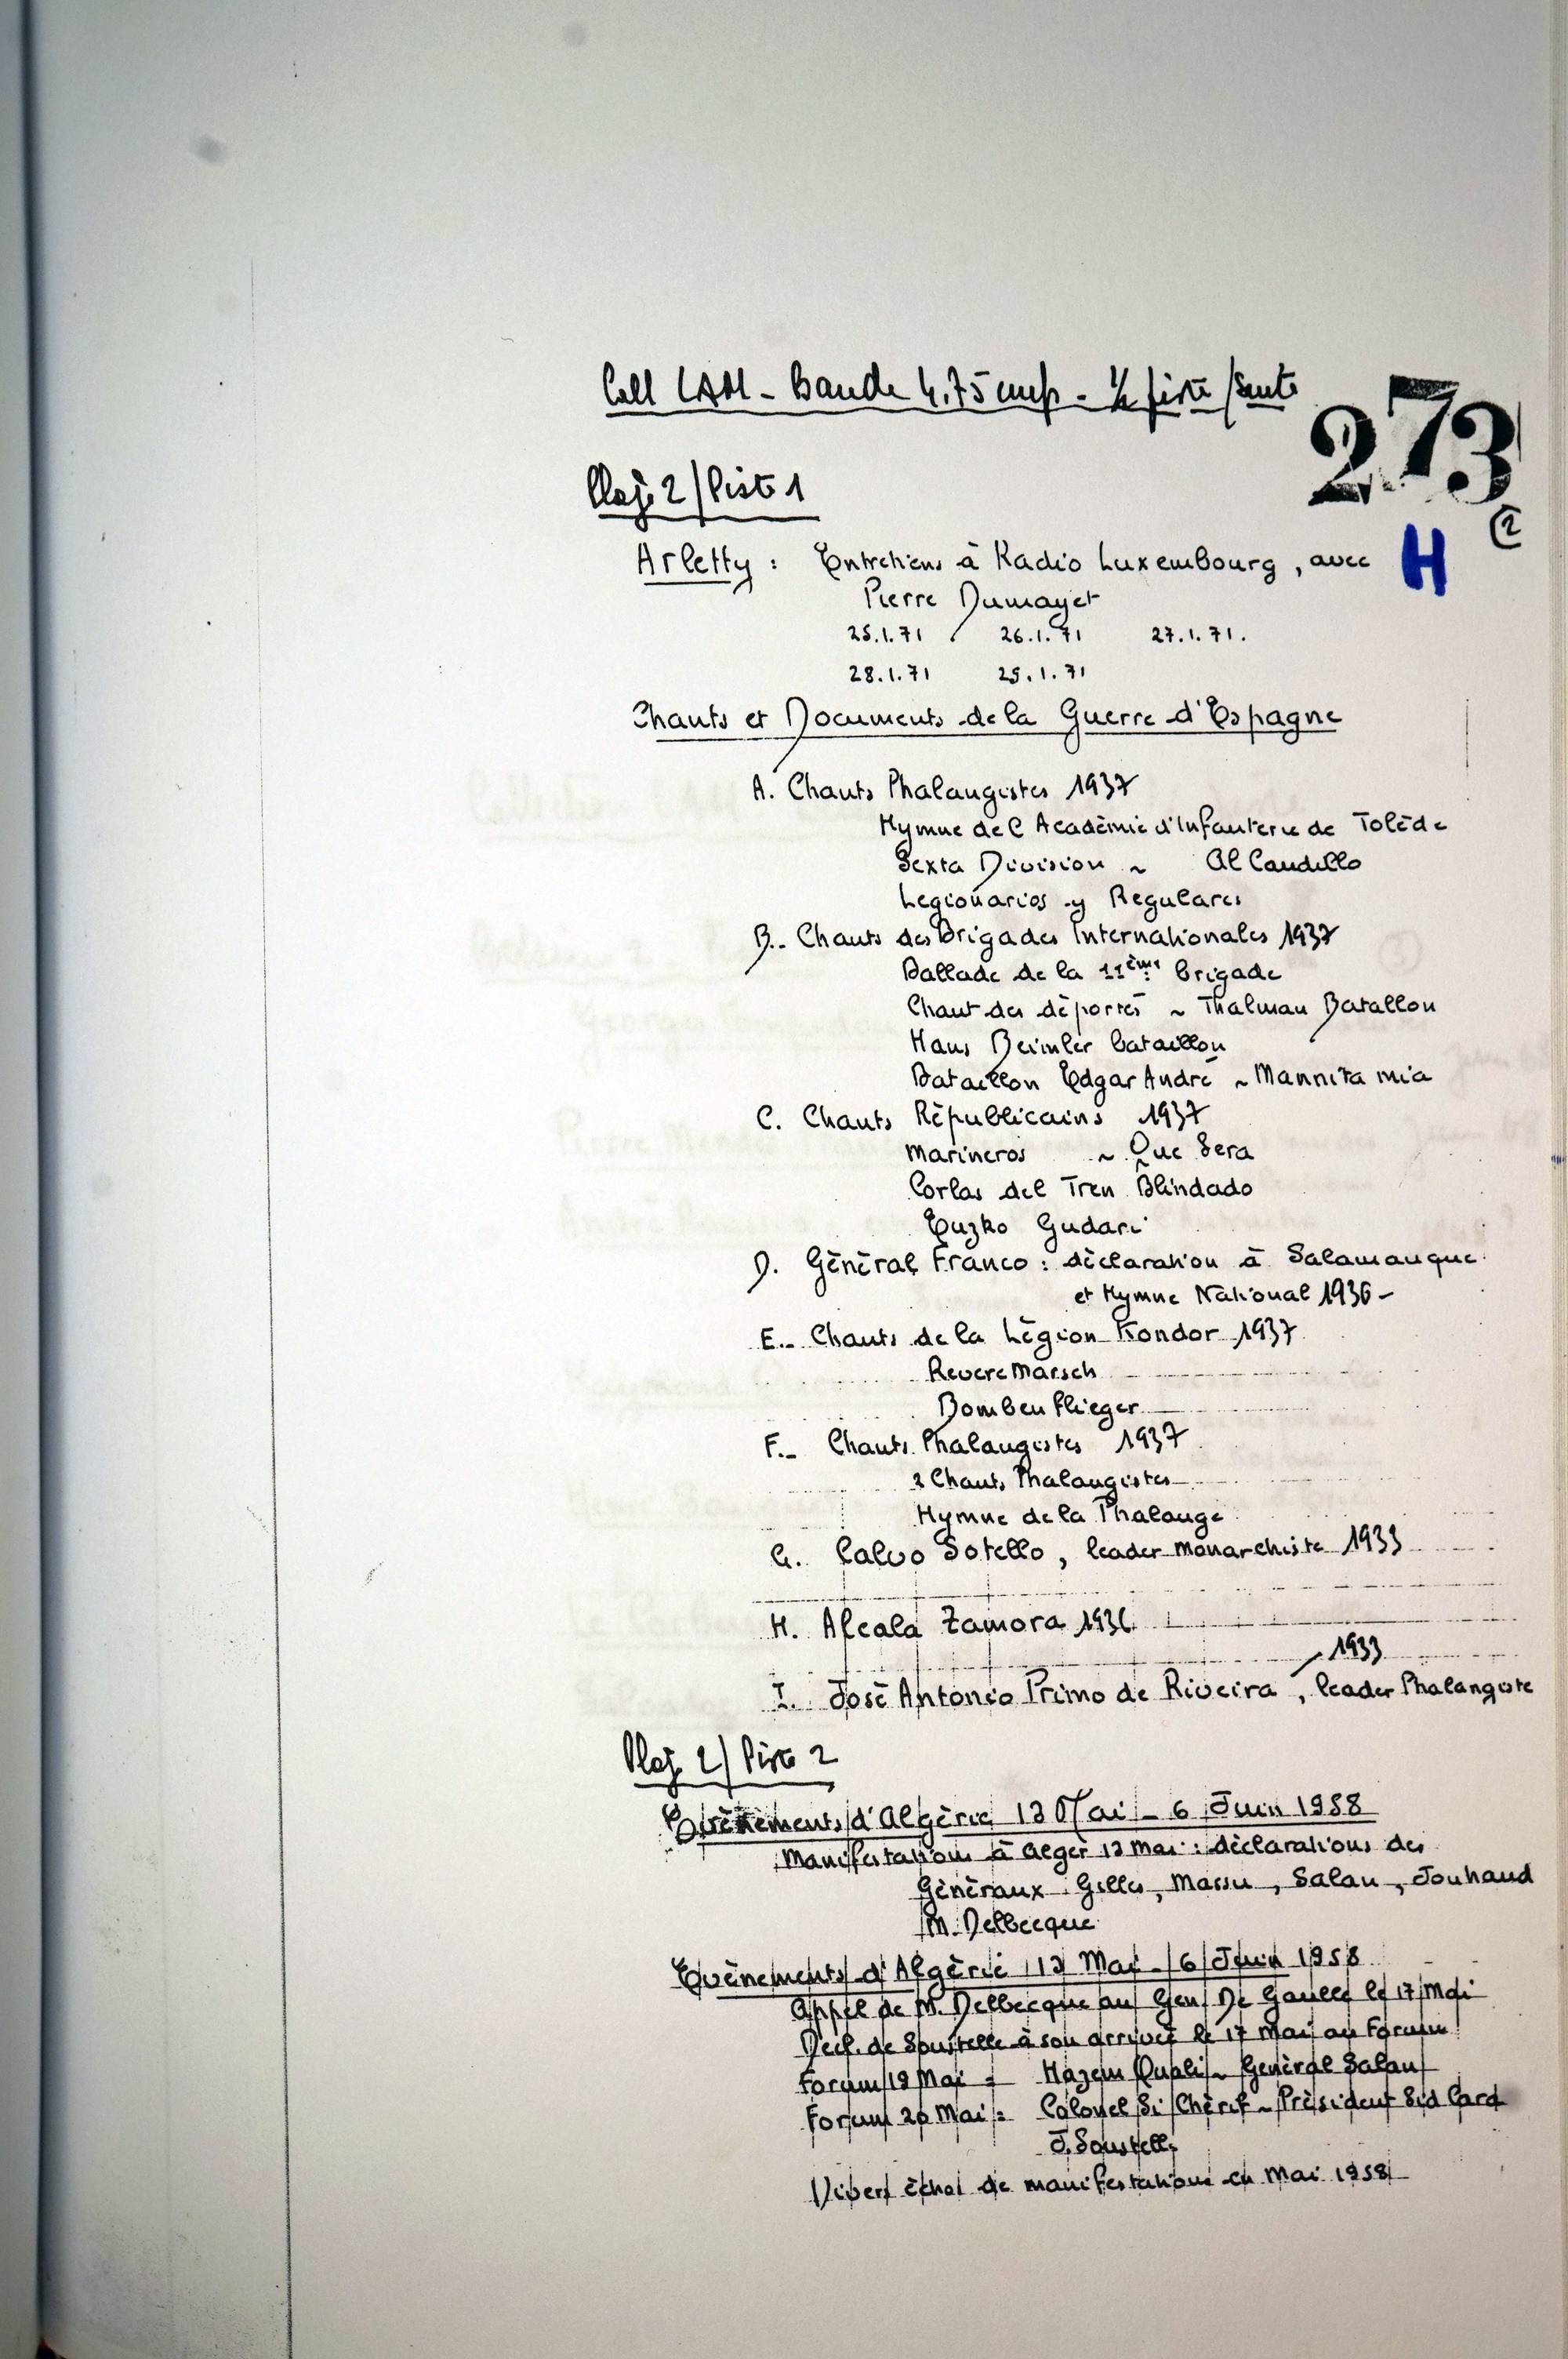 Coll LAM - Bande 4.75 cmps - ½ piste /suite
273
Plage 2 / Piste 1
(2
H
Arletty : Entretiens à Radio Luxembourg, avec
Pierre Dumayet
25.1.71 26.1.71 27.1.71.
28.1.71 29.1.71
Chants et Documents de la Guerre d'Espagne
A. Chants Phalangistes 1937
Hymne de l Académie d'Infanterie de Tolède
Sexta Division ~ Al Caudillo
Legionarios y Regulares
B.- Chants des Brigades Internationales 1937
Ballade de la 11ème brigade
Chant des déportés ~ Thalman Batallon
Hans Beimler bataillon
Bataillon Edgar André ~ Mannita mia
C. Chants Républicains 1937
Marineros ~ Que Sera
Corlas del Tren Blindado
Euzko Gudari
D. Général Franco : déclaration à Salamanque
et Hymne National 1936 -
E.- Chants de la Légion Kondor 1937
Revere Marsch
Bomben flieger
F.- Chants Phalangistes 1937
2 Chants Phalangistes
Hymne de la Phalange
G. Calvo Sotello, leader monarchiste 1933
H. Alcala Zamora 1936
1933
I. José Antonio Primo de Riveira, leader Phalangiste
Plage 2 / Piste 2
Evènements d'Algérie 13 Mai - 6 Juin 1958
Manifestations à Alger 13 mai : déclarations des
Généraux Gilles, Massu, Salan, Jouhaud
M. Delbecque
Evènements d'Algérie 13 Mai - 6 Juin 1958
Appel de M. Delbecque au Gen. De Gaulle le 17 Mai
Decl. de Soustelle à son arrivée le 17 Mai au Forum
Forum 19 Mai = Hazem Ouali ~ Général Salan
Forum 20 Mai = Colonel Si Chérif ~ Président Sid Cara
J. Soustelle
Divers échos de manifestations en Mai 1958